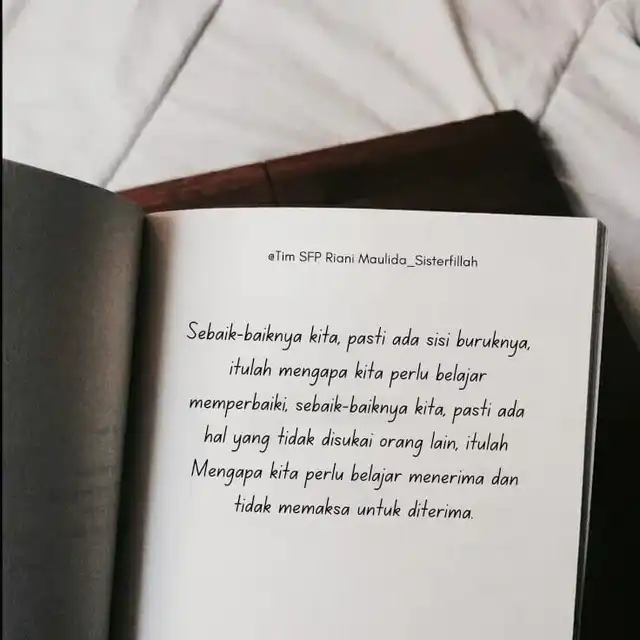 @Tim SFP Riani Maulida_Sisterfillah
Sebaik-baiknya kita, pasti ada sisi buruknya,
itulah mengapa kita perlu belajar
memperbaiki, sebaik-baiknya kita, pasti ada
hal yang tidak disukai orang lain, itulah
Mengapa kita perlu belajar menerima dan
tidak memaksa untuk diterima.